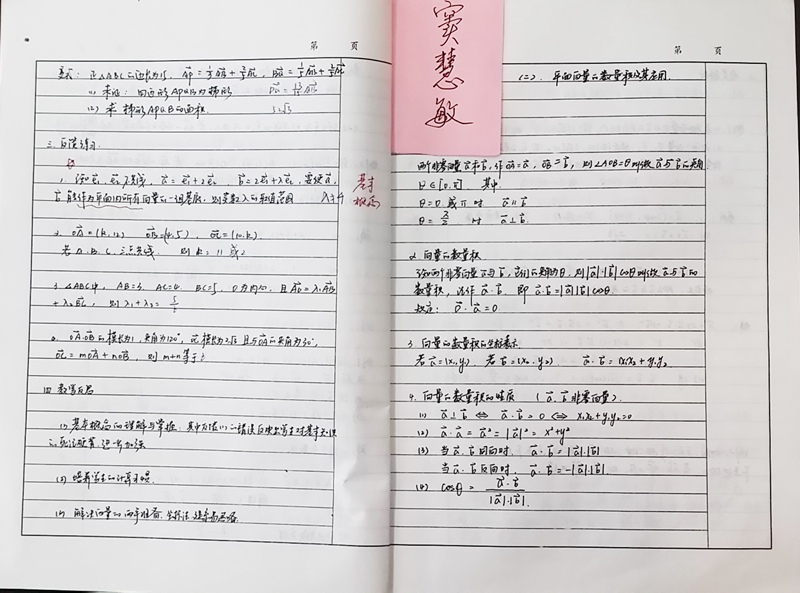 第 页
变式：正△ABC的边长为15, AP=1/3AB+2/5AC, BQ=1/5AB+2/5AC
(1) 求证：四边形APQB为梯形
(2) 求梯形APQB的面积
三、反馈练习
1. 设e₁、e₂不共线, a=e₁+2e₂ b=2e₁+λe₂, 要使a,
b能作为平面内所有向量的一组基底, 则实数λ的取值范围 λ≠4
基本
概念
2. OA=(k,12) OB=(4,5), OC=(10,k)
若A.B.C.三点共线 则k=11或2
3. △ABC中, AB=3, AC=4, BC=5, O为内心, 且AO=λ₁AB
+λ₂BC, 则λ₁+λ₂=5/6
OA.OB的模长为1, 夹角为120°, OC模长为2√3且与OA的夹角为30°,
OC=mOA+nOB, 则m+n等于
四、教学反思
(1) 基本概念的理解与掌握,
(2) 培养学生的计算习惯
窦慧敏
第 页
(二). 平面向量的数量积及其应用.
两个非零向量a和b, 作OA=a, OB=b, 则∠AOB=θ叫做a与b的夹角
θ∈[0,π] 其中
θ=0或π时 a∥b
θ=π/2 时 a⊥b
2. 向量的数量积
已知两个非零向量a与b, 它们的夹角为θ, 则|a|·|b|cosθ叫做a与b的
数量积, 记作a·b, 即a·b=|a||b|cosθ
规定：0·a=0
3. 向量的数量积的坐标表示
若a=(x₁,y₁) 若b=(x₂,y₂) a·b=x₁x₂+y₁y₂
4. 向量的数量积的性质 (a.b非零向量)
(1) a⊥b ⇔ a·b=0 ⇔ x₁x₂+y₁y₂=0
(2) a·a=a²=|a|²=x²+y²
(3) 当a.b同向时, a·b=|a|·|b|
当a.b反向时, a·b=-|a|·|b|.
(4) cosθ=a·b/|a|·|b|.